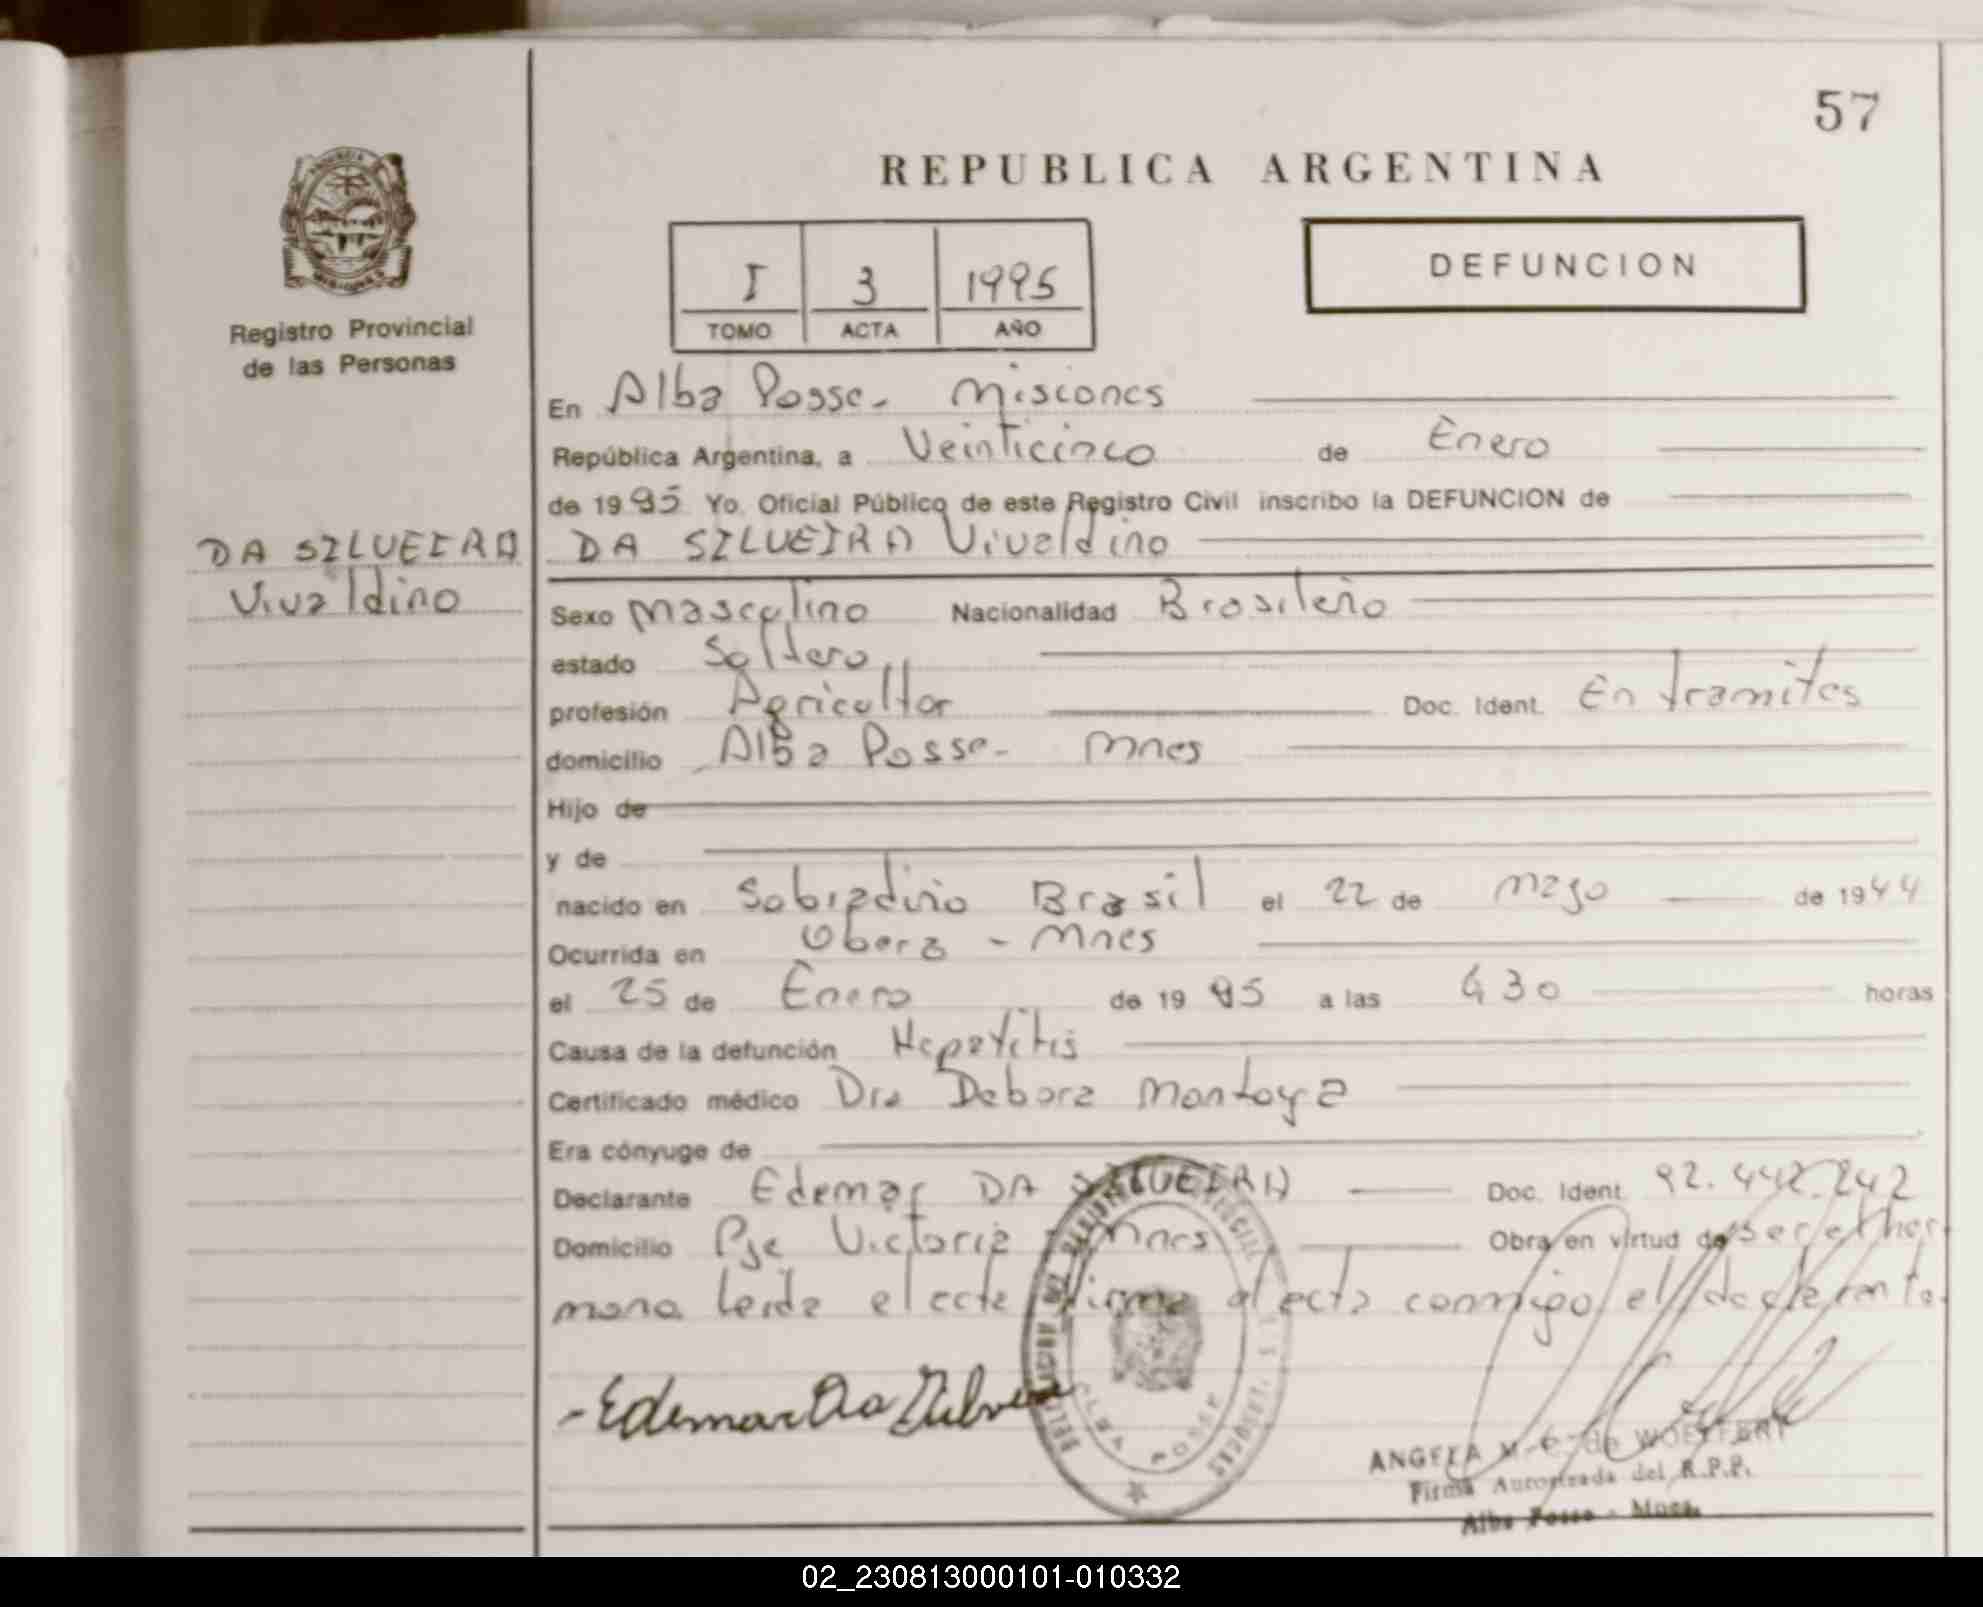 57
REPUBLICA ARGENTINA
I 3 1995
TOMO ACTA AÑO
DEFUNCION
Registro Provincial
de las Personas
DA SILVEIRA
Vivaldino
En Alba Posse - Misiones
República Argentina, a Veinticinco de Enero
de 1995 Yo, Oficial Público de este Registro Civil inscribo la DEFUNCION de
DA SILVEIRA Vivaldino
Sexo Masculino Nacionalidad Brasileño
estado Soltero
profesión Agricultor Doc. Ident. En tramites
domicilio Alba Posse - Mnes
Hijo de
y de
nacido en Brasil el 22 de Mayo de 1944
Ocurrida en Obera - Mnes
el 25 de Enero de 1995 a las 430 horas
Causa de la defunción Hepatitis
Certificado médico Dra Debora Montoya
Era cónyuge de
Declarante Edemar DA SILVEIRA Doc. Ident. 92.442.242
Domicilio Pje Victoria - Mnes Obra en virtud de ser el her
mano. Leida el acta firma el acta conmigo el declarante.
Edemar Da Silvei
ALBA POSSE
ANGELA M. C. de WOLFFERT
Firma Autorizada del R.P.P.
Alba Posse - Mnes.
02_230813000101-010332